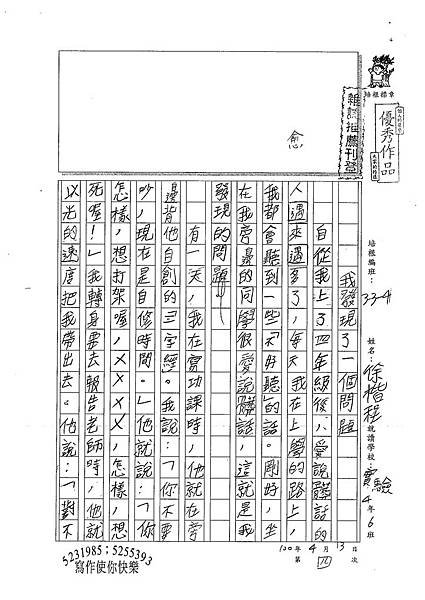 培程標章
優秀作品
雜誌推薦刊登
愈
培程編班：33-4 姓名：徐楷程 就讀學校 實驗 4年6班
100年4月13日
第四次
我發現了一個問題
自從我上了四年級後，愛說髒話的
人遇來遇多了，每天我在上學的路上，
我都會聽到一些「好聽」的話。剛好，坐
在我旁邊的同學很愛說髒話，這就是我
發現的問題。
有一天，我在寫功課時，他就在旁
邊背他自創的三字經。我說：「你不要
吵，現在是自修時間。」他就說：「你
怎樣，想打架喔，×××，怎樣，想
死喔！」我轉身要去報告老師時，他就
以光的速度把我帶出去。他說：「對不
5231985；5255393
寫作使你快樂